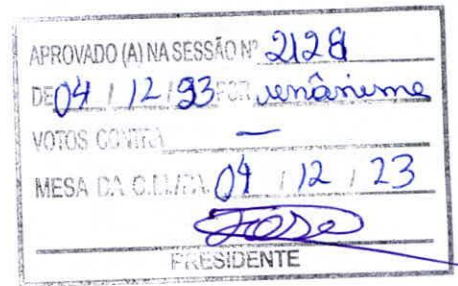 APROVADO (A) NA SESSÃO Nº 2128
DE 04 / 12 / 23 POR unânime
VOTOS CONTRA —
MESA DA 04 / 12 / 23
PRESIDENTE